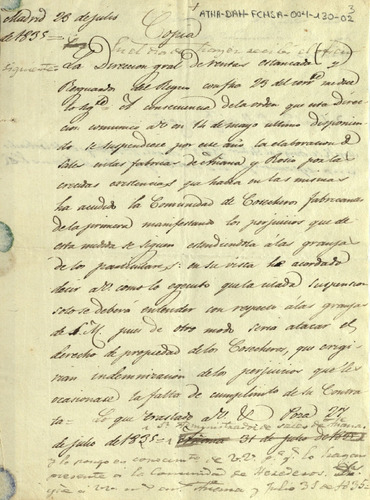 ATHA-DAH-FCHSA-004-130-02
3
Madrid 25 de julio
de 1835
Copia
Siguiente
La Direccion gral de Rentas estancadas y
Resguardos del Reyno con fha 25 del corrte me dice
lo sigte = A consecuencia de la orden que esta Direc-
cion comunicó a V. en 14 de mayo ultimo disponien-
do se suspendiese por este año la elaboracion de
Sales en las fabricas de Añana y Rosio por las
crecidas existencias que habia en las mismas
ha acudido la Comunidad de Cosecheros fabricantes
de la primera manifestando los perjuicios que de
esta medida se siguen estendiendola á las granjas
de los particulares; en su vista ha acordado
decir a V. como lo egecuto que la citada suspension
solo se deberá entender con respecto á las granjas
de S. M. pues de otro modo seria atacar el
derecho de propiedad de los Cosecheros, que exigi-
rian indemnizacion de los perjuicios que les
ocasionase la falta de cumplimto de la Contra-
ta = Lo que traslado a V. &. Poza 27
de julio de 1835 = Sr Administrador de Sales de Añana.
31 de julio de 1835
y lo pongo en conocimto de V. y lo hagan
presente á la Comunidad de Herederos.
Añana y Julio 31 de 1835 =